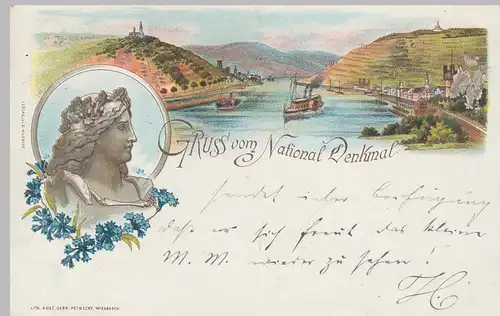 Gruss vom National Denkmal
sendet in der
daß er sich freut das kleine
M. M. wieder zu sehen!
H.
LITH. ANST. GEBR. PETMECKY, WIESBADEN